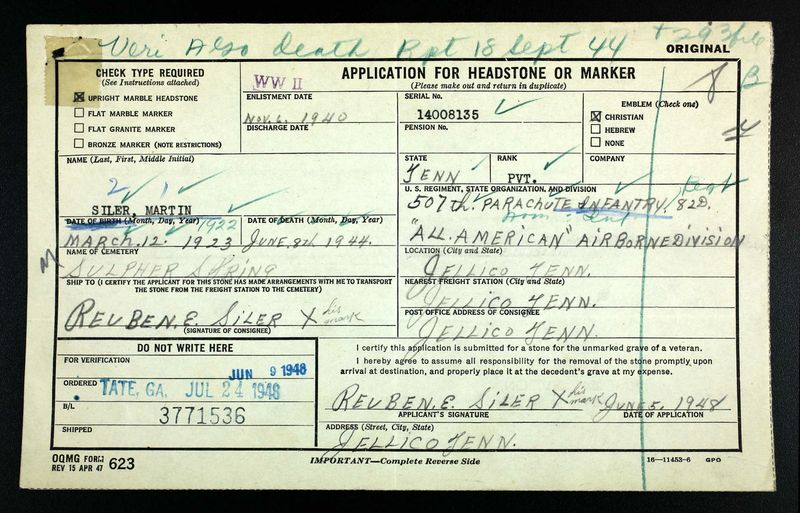 Veri Also Death Rpt 18 Sept 44
ORIGINAL
B
CHECK TYPE REQUIRED
(See Instructions attached)
UPRIGHT MARBLE HEADSTONE
FLAT MARBLE MARKER
FLAT GRANITE MARKER
BRONZE MARKER (NOTE RESTRICTIONS)
WW II
APPLICATION FOR HEADSTONE OR MARKER
(Please make out and return in duplicate)
ENLISTMENT DATE
NOV. 6. 1940
DISCHARGE DATE
SERIAL No.
14008135
PENSION No.
EMBLEM (Check one)
CHRISTIAN
HEBREW
NONE
NAME (Last, First, Middle Initial)
2 1
SILER, MARTIN
STATE
TENN
RANK
PVT.
COMPANY
U. S. REGIMENT, STATE ORGANIZATION, AND DIVISION
507th. PARACHUTE INFANTRY, 82D.
"ALL. AMERICAN" AIRBORNE DIVISION
DATE OF BIRTH (Month, Day, Year)
1922
MARCH. 12. 1923
DATE OF DEATH (Month, Day, Year)
JUNE, 8th, 1944.
NAME OF CEMETERY
SULPHER SPRING
LOCATION (City and State)
JELLICO TENN.
SHIP TO (I CERTIFY THE APPLICANT FOR THIS STONE HAS MADE ARRANGEMENTS WITH ME TO TRANSPORT
THE STONE FROM THE FREIGHT STATION TO THE CEMETERY)
REUBEN. E. SILER X his mark
(SIGNATURE OF CONSIGNEE)
NEAREST FREIGHT STATION (City and State)
JELLICO TENN.
POST OFFICE ADDRESS OF CONSIGNEE
JELLICO TENN.
DO NOT WRITE HERE
FOR VERIFICATION
JUN 9 1948
ORDERED
TATE, GA. JUL 24 1948
B/L
3771536
SHIPPED
I certify this application is submitted for a stone for the unmarked grave of a veteran.
I hereby agree to assume all responsibility for the removal of the stone promptly upon
arrival at destination, and properly place it at the decedent's grave at my expense.
REUBEN. E. SILER X his mark JUNE 5, 1948
APPLICANT'S SIGNATURE DATE OF APPLICATION
ADDRESS (Street, City, State)
JELLICO TENN.
OQMG FORM
REV 15 APR 47 623
IMPORTANT—Complete Reverse Side
16—11453-6 GPO